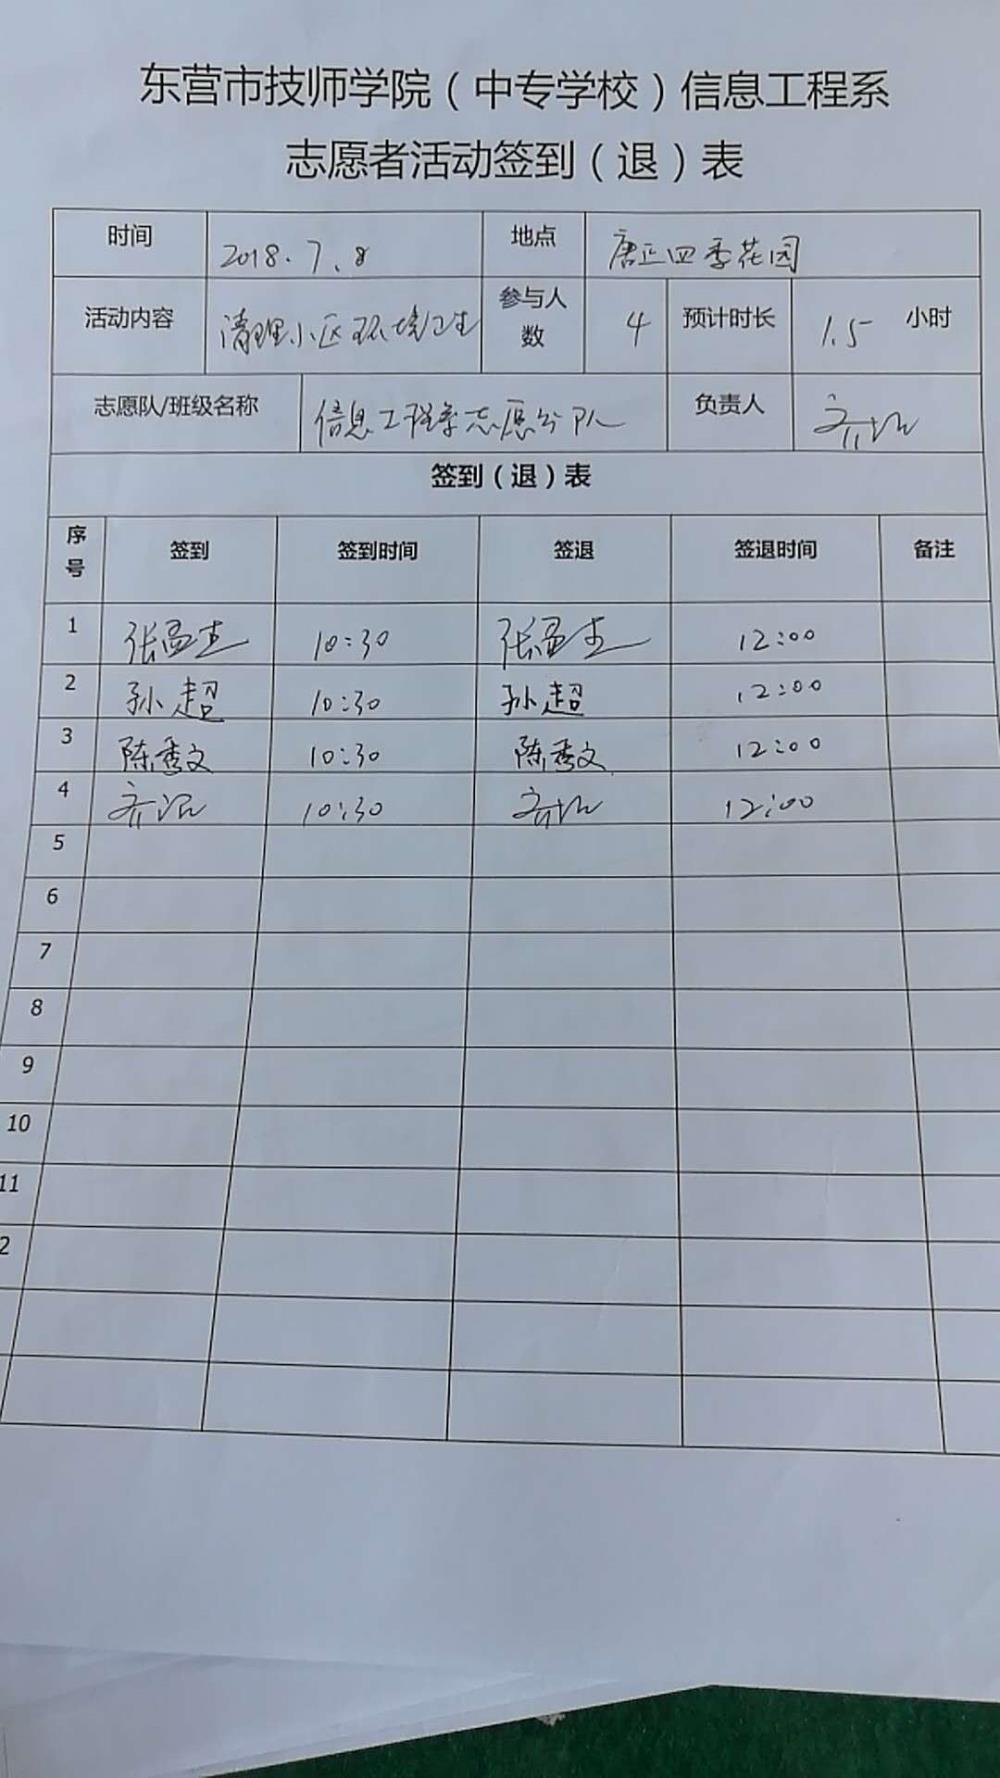 东营市技师学院（中专学校）信息工程系
志愿者活动签到（退）表
时间 2018.7.8 地点 唐正四季花园
活动内容 清理小区环境卫生 参与人数 4 预计时长 1.5 小时
志愿队/班级名称 信息工程系志愿分队 负责人
签到（退）表
序号 签到 签到时间 签退 签退时间 备注
1 张孟杰 10:30 张孟杰 12:00
2 孙超 10:30 孙超 12:00
3 陈秀文 10:30 陈秀文 12:00
4 10:30 12:00
5
6
7
8
9
10
11
2